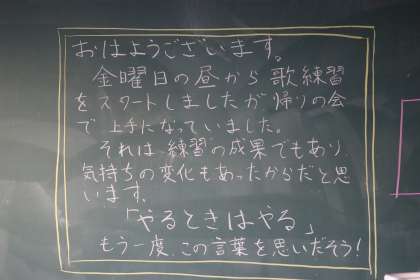 おはようございます。
金曜日の昼から歌練習
をスタートしましたが帰りの会
で上手になっていました。
それは練習の成果でもあり、
気持ちの変化もあったからだと思
います。
「やるときはやる」
もう一度、この言葉を思いだそう!